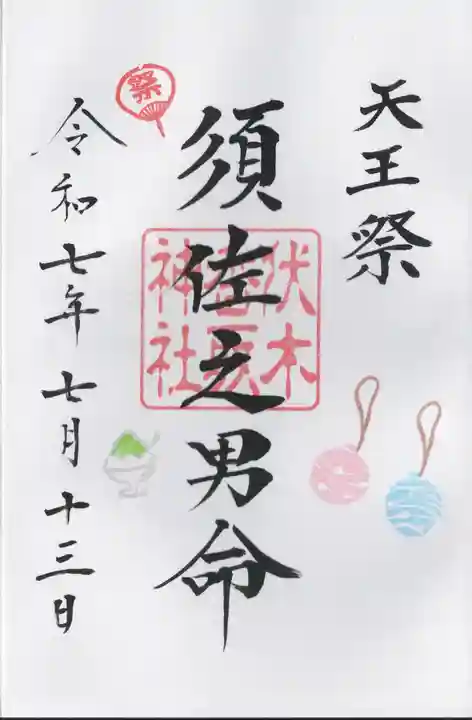 天王祭
須佐之男命
伏木
神社
令和七年七月十三日
祭